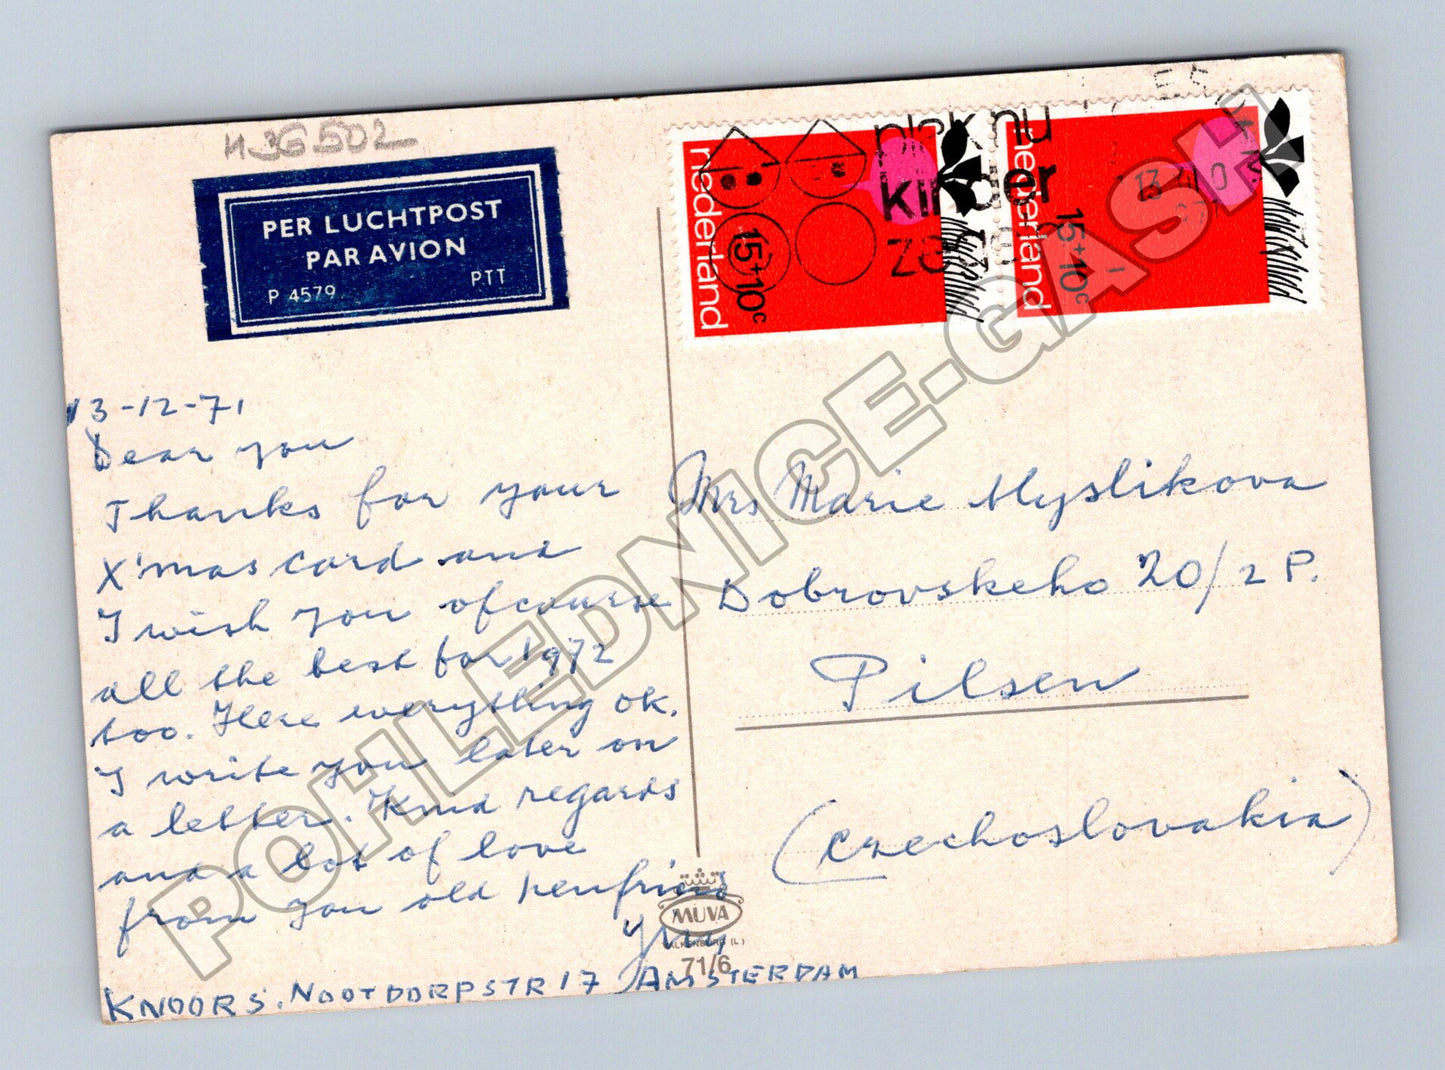 H3G502
PER LUCHTPOST
PAR AVION
P 4579 PTT
nederland
15+10c
nederland
15+10c
plak nu
kinder
13 XII
13-12-71
Dear you
Thanks for your
X'mas card and
I wish you ofcourse
all the best for 1972
too. Here everything ok.
I write you later on
a letter. Kind regards
and a lot of love
from you old penfriend
KNOORS. NOOTDORPSTR 17 AMSTERDAM
Mrs Marie Myslikova
Dobrovskeho 20/2 P.
Pilsen
(Czechoslovakia)
MUVA
VALKENBURG (L.)
71/6
POHLEDNICE-GASH